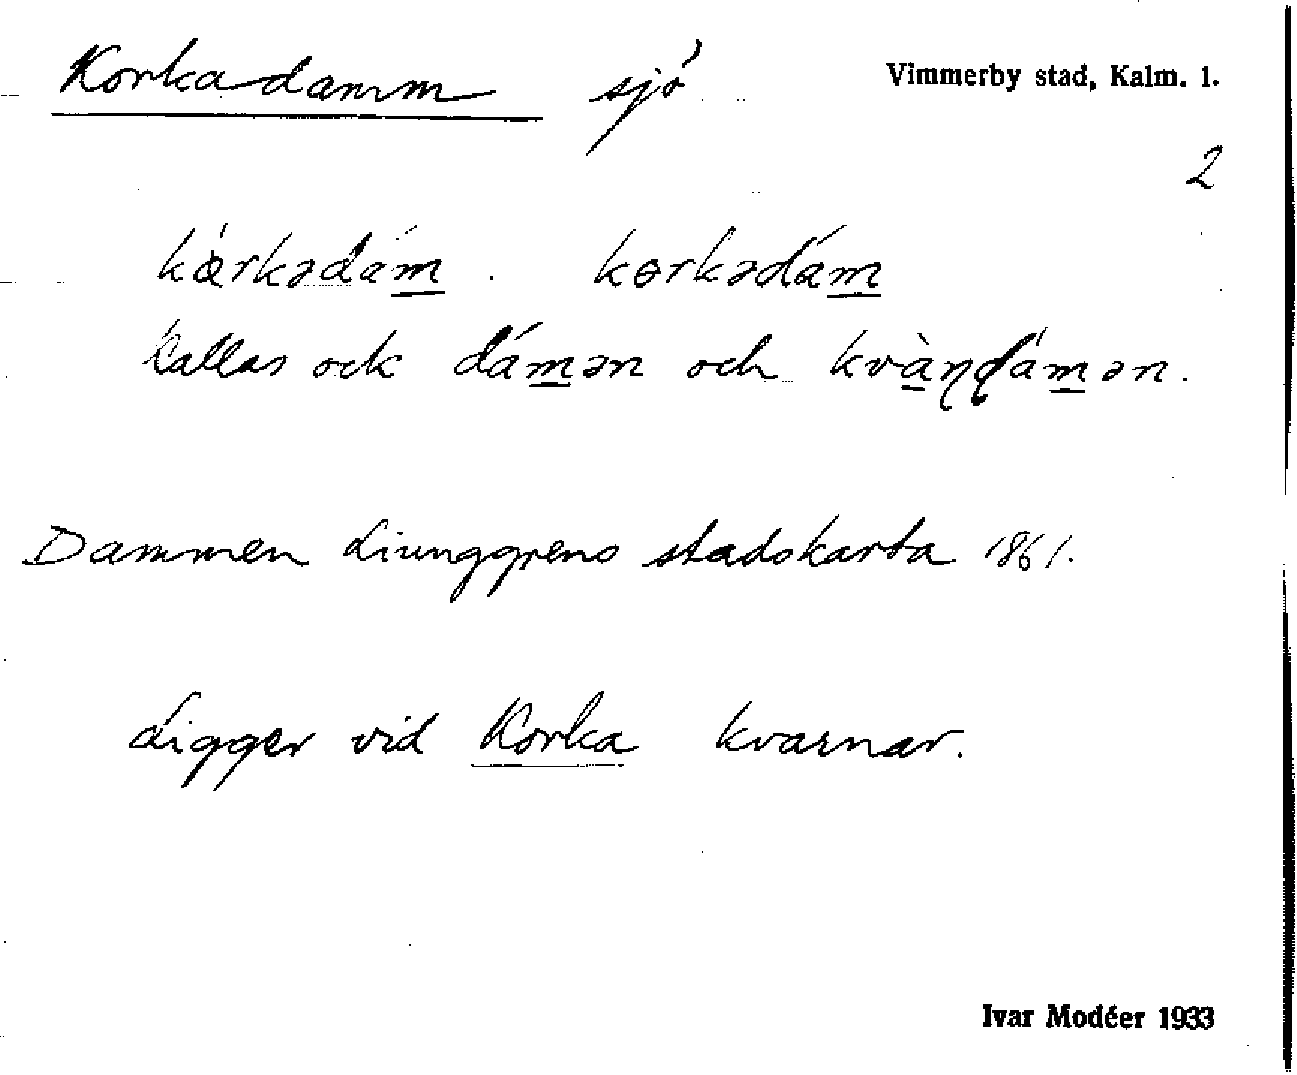 Korkadamm sjö Vimmerby stad, Kalm. l.
2
kɵ́rkədám. kɵrkədám
Kallas ock dámən och kvàɳɖámən.
Dammen Liunggrens stadskarta 1861.
Ligger vid Korka kvarnar.
Ivar Modéer 1933